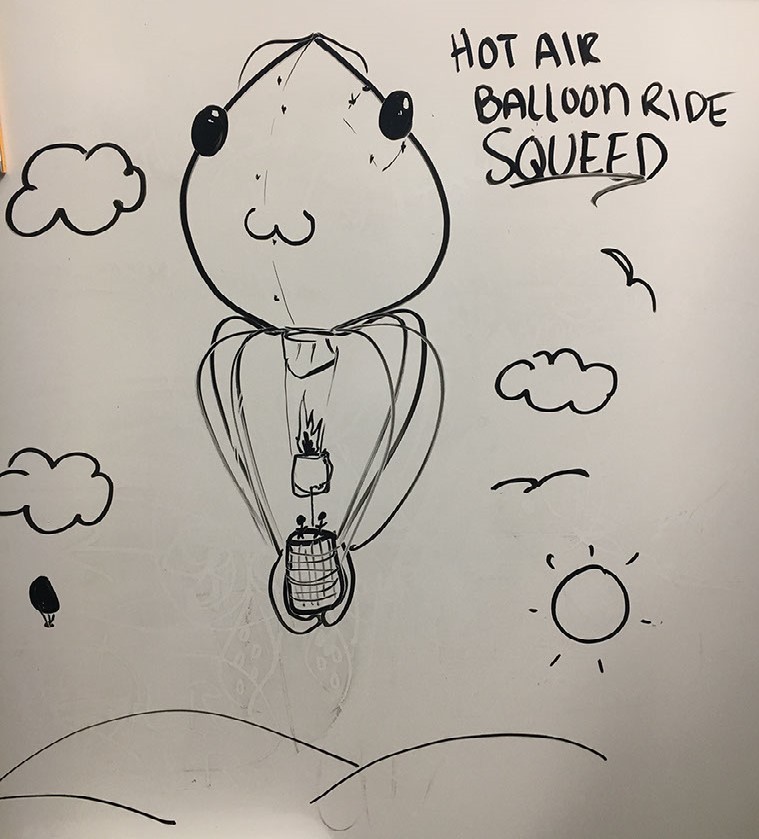 HOT AIR
BALLOON RIDE
SQUEED